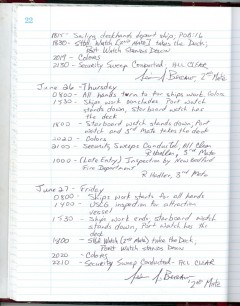 22
1815 - Sailing deckhands depart ship, POB: 16
1830 - STBD Watch [2nd Mate] takes the Deck;
Port Watch Stands Down
2019 - Colors
2130 - Security Sweep Conducted, ALL CLEAR
2nd Mate
June 26 - Thursday
0800 - All hands turn to for ships work. Colors
1730 - Ships work concludes. Port Watch
stands down, Starboard watch has
the deck
1800 - Starboard watch stands down, Port
watch and 3rd Mate takes the deck
1020 - Colors
2100 - Security Sweeps Conducted, All Clear
R Hadler, 3rd Mate
1000 - (Late Entry) Inspection by New Bedford
Fire Department
R Hadler, 3rd Mate
June 27 - Friday
0800 - Ships work starts for all hands
1400 - USCG inspection for attraction
vessel
1730 - Ships work ends, starboard watch
stands down, Port Watch has
the deck
1800 - STBD Watch (2nd Mate) takes the Deck,
Port Watch stands Down
2020 - Colors
2210 - Security Sweep Conducted - ALL CLEAR
2nd Mate